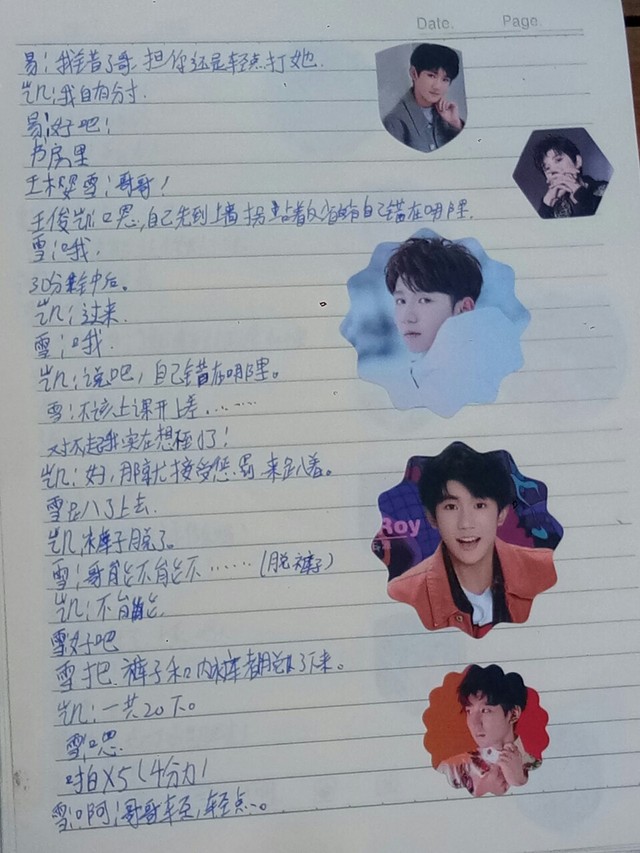 Date. Page.
易:我错了哥 但你还是轻点打她.
凯:我自有分寸.
易:好吧!
书房里
王梓雪:哥哥!
王俊凯:嗯,自己先到墙拐站着 自己错在哪里.
雪:哦.
30分钟后。
凯:过来.
雪:哦.
凯:说吧,自己错在哪里。
雪:不该上课开差……
对不起我实在想 了!
凯:好,那就接受惩罚 来趴着。
雪趴了上去.
凯:裤子脱了。
雪:哥能不能不……(脱裤子)
凯:不能
雪:好吧
雪把裤子和内裤都脱了下来。
凯:一共20下。
雪:嗯.
啪X5(4分力)
雪:啊!哥哥轻,轻点。
Roy